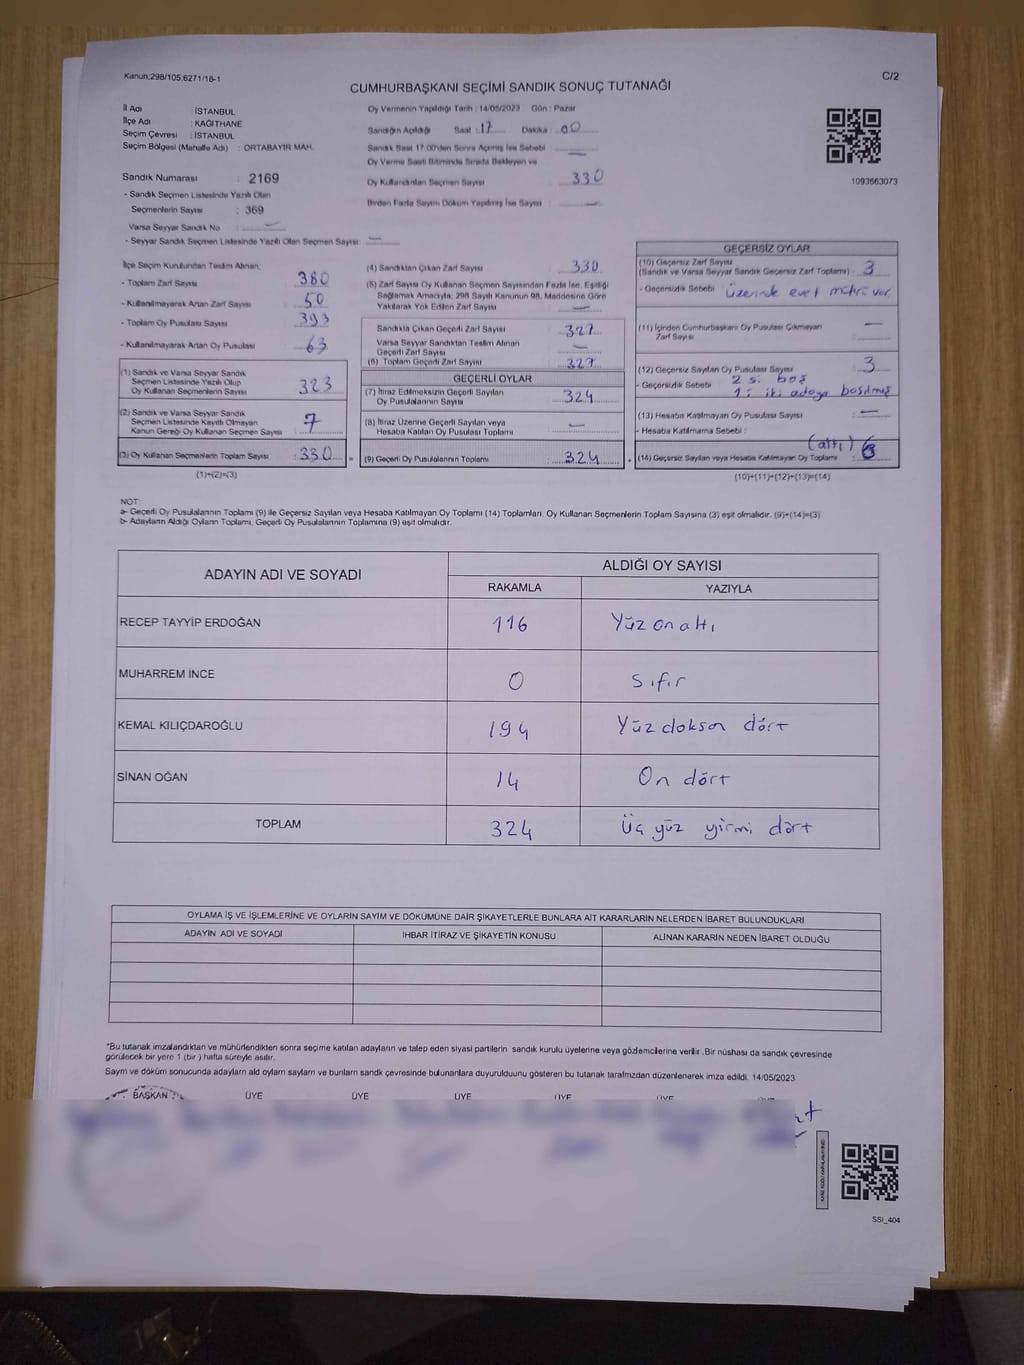 Kanun:298/105;6271/18-1
C/2
CUMHURBAŞKANI SEÇİMİ SANDIK SONUÇ TUTANAĞI
İl Adı : İSTANBUL
İlçe Adı : KAĞITHANE
Seçim Çevresi : İSTANBUL
Seçim Bölgesi (Mahalle Adı) : ORTABAYIR MAH.
Sandık Numarası : 2169
- Sandık Seçmen Listesinde Yazılı Olan
Seçmenlerin Sayısı : 369
Varsa Seyyar Sandık No : —
- Seyyar Sandık Seçmen Listesinde Yazılı Olan Seçmen Sayısı: —
Oy Vermenin Yapıldığı Tarih : 14/05/2023 Gün : Pazar
Sandığın Açıldığı Saat : 17 Dakika : 00
Sandık Saat 17.00'den Sonra Açılmış İse Sebebi : —
Oy Verme Saati Bitiminde Sırada Bekleyen ve
Oy Kullandırılan Seçmen Sayısı 330
Birden Fazla Sayım Döküm Yapılmış İse Sayısı : —
1093663073
İlçe Seçim Kurulundan Teslim Alınan;
- Toplam Zarf Sayısı : 380
- Kullanılmayarak Artan Zarf Sayısı : 50
- Toplam Oy Pusulası Sayısı : 393
- Kullanılmayarak Artan Oy Pusulası : 63
(1) Sandık ve Varsa Seyyar Sandık
Seçmen Listesinde Yazılı Olup
Oy Kullanan Seçmenlerin Sayısı : 323
(2) Sandık ve Varsa Seyyar Sandık
Seçmen Listesinde Kayıtlı Olmayan
Kanun Gereği Oy Kullanan Seçmen Sayısı : 7
(3) Oy Kullanan Seçmenlerin Toplam Sayısı : 330
(1)+(2)=(3)
(4) Sandıktan Çıkan Zarf Sayısı : 330
(5) Zarf Sayısı Oy Kullanan Seçmen Sayısından Fazla İse, Eşitliği
Sağlamak Amacıyla, 298 Sayılı Kanunun 98. Maddesine Göre
Yakılarak Yok Edilen Zarf Sayısı : —
Sandıkta Çıkan Geçerli Zarf Sayısı : 327
Varsa Seyyar Sandıktan Teslim Alınan
Geçerli Zarf Sayısı : —
(6) Toplam Geçerli Zarf Sayısı : 327
GEÇERLİ OYLAR
(7) İtiraz Edilmeksizin Geçerli Sayılan
Oy Pusulalarının Sayısı : 324
(8) İtiraz Üzerine Geçerli Sayılan veya
Hesaba Katılan Oy Pusulası Toplamı : —
= (9) Geçerli Oy Pusulalarının Toplamı : 324
GEÇERSİZ OYLAR
(10) Geçersiz Zarf Sayısı
(Sandık ve Varsa Seyyar Sandık Geçersiz Zarf Toplamı) : 3
- Geçersizlik Sebebi : üzerinde evet mührü var
(11) İçinden Cumhurbaşkanı Oy Pusulası Çıkmayan
Zarf Sayısı : —
(12) Geçersiz Sayılan Oy Pusulası Sayısı : 3
- Geçersizlik Sebebi : 2 si boş
1 i iki adaya basılmış
(13) Hesaba Katılmayan Oy Pusulası Sayısı : —
- Hesaba Katılmama Sebebi :
(altı)
+ (14) Geçersiz Sayılan veya Hesaba Katılmayan Oy Toplamı : 6
(10)+(11)+(12)+(13)=(14)
NOT:
a- Geçerli Oy Pusulalarının Toplamı (9) ile Geçersiz Sayılan veya Hesaba Katılmayan Oy Toplamı (14) Toplamları, Oy Kullanan Seçmenlerin Toplam Sayısına (3) eşit olmalıdır. (9)+(14)=(3)
b- Adayların Aldığı Oyların Toplamı, Geçerli Oy Pusulalarının Toplamına (9) eşit olmalıdır.
ADAYIN ADI VE SOYADI
ALDIĞI OY SAYISI
RAKAMLA YAZIYLA
RECEP TAYYİP ERDOĞAN 116 Yüz on altı
MUHARREM İNCE 0 Sıfır
KEMAL KILIÇDAROĞLU 194 Yüz doksan dört
SİNAN OĞAN 14 On dört
TOPLAM 324 Üç yüz yirmi dört
OYLAMA İŞ VE İŞLEMLERİNE VE OYLARIN SAYIM VE DÖKÜMÜNE DAİR ŞİKAYETLERLE BUNLARA AİT KARARLARIN NELERDEN İBARET BULUNDUKLARI
ADAYIN ADI VE SOYADI İHBAR İTİRAZ VE ŞİKAYETİN KONUSU ALINAN KARARIN NEDEN İBARET OLDUĞU
*Bu tutanak imzalandıktan ve mühürlendikten sonra seçime katılan adayların ve talep eden siyasi partilerin sandık kurulu üyelerine veya gözlemcilerine verilir .Bir nüshası da sandık çevresinde
görülecek bir yere 1 (bir ) hafta süreyle asılır.
Sayım ve döküm sonucunda adayların ald oyların sayları ve bunların sandk çevresinde bulunanlara duyurulduunu gösteren bu tutanak tarafmzdan düzenlenerek imza edildi. 14/05/2023
BAŞKAN ÜYE ÜYE ÜYE ÜYE ÜYE
SSI_404